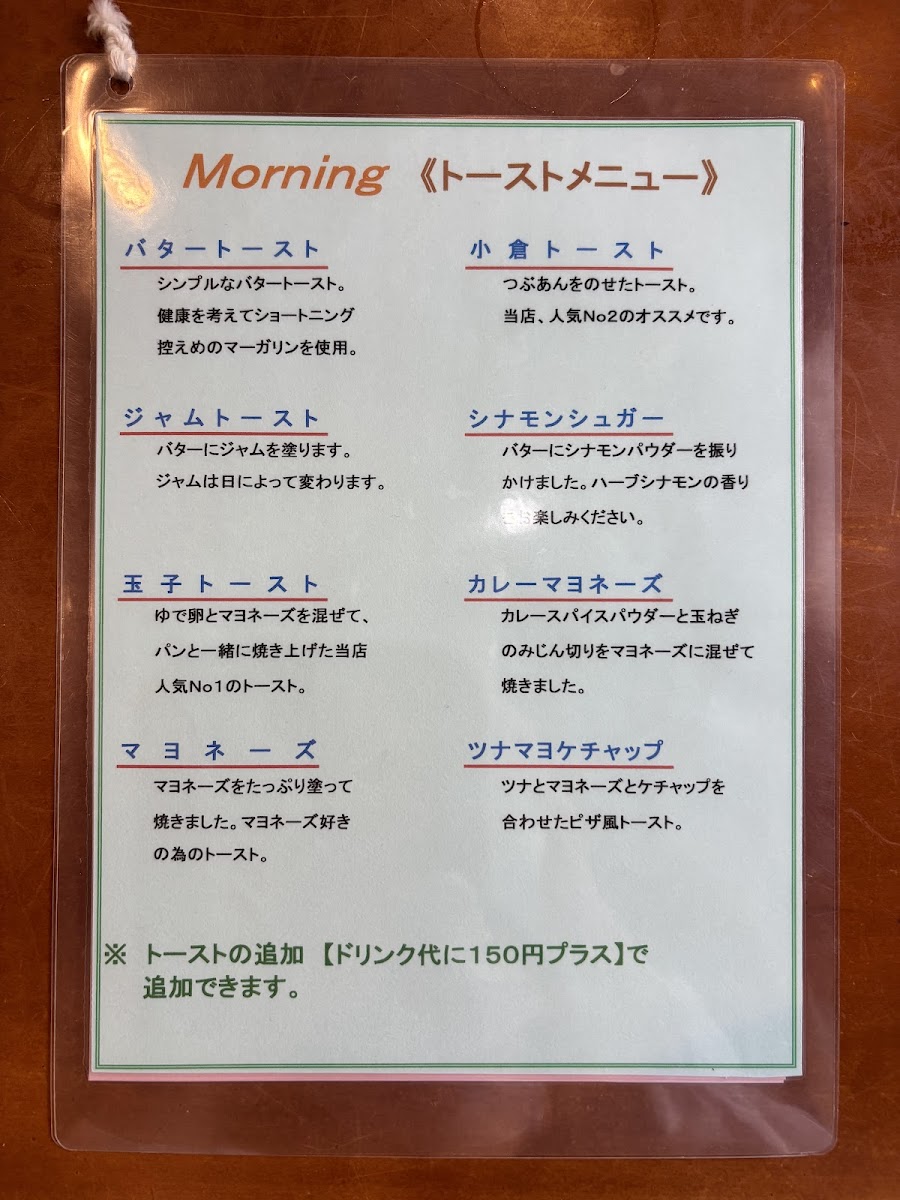 Morning 《トーストメニュー》
バタートースト
シンプルなバタートースト。
健康を考えてショートニング
控えめのマーガリンを使用。
小倉トースト
つぶあんをのせたトースト。
当店、人気No2のオススメです。
ジャムトースト
バターにジャムを塗ります。
ジャムは日によって変わります。
シナモンシュガー
バターにシナモンパウダーを振り
かけました。ハーブシナモンの香り
お楽しみください。
玉子トースト
ゆで卵とマヨネーズを混ぜて、
パンと一緒に焼き上げた当店
人気No1のトースト。
カレーマヨネーズ
カレースパイスパウダーと玉ねぎ
のみじん切りをマヨネーズに混ぜて
焼きました。
マヨネーズ
マヨネーズをたっぷり塗って
焼きました。マヨネーズ好き
の為のトースト。
ツナマヨケチャップ
ツナとマヨネーズとケチャップを
合わせたピザ風トースト。
※ トーストの追加 【ドリンク代に150円プラス】で
追加できます。